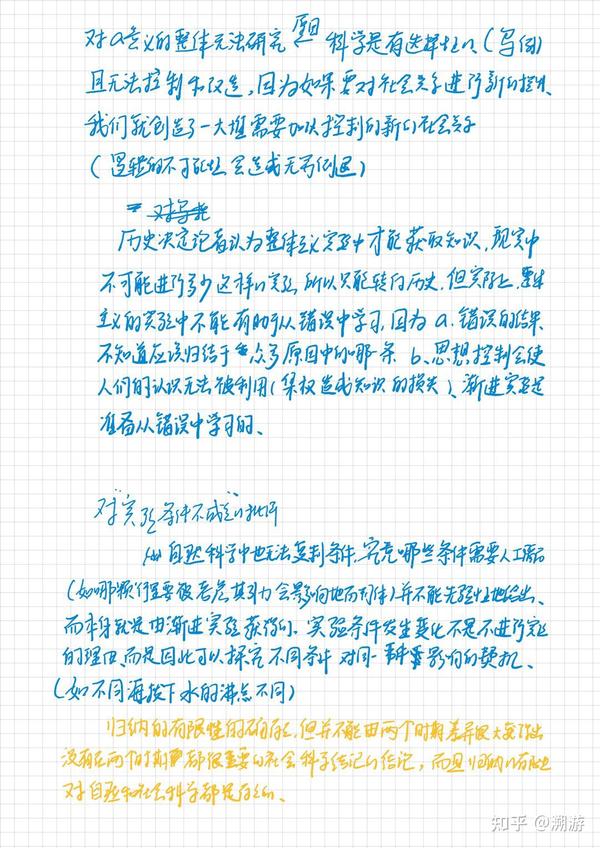 对a意义的整体无法研究 原因 科学是有选择性的(写倒)
且无法控制和改造,因为如果要对社会关系进行新的控制,
我们就创造了一大堆需要加以控制的新的社会关系
(逻辑的不可能性 会造成无穷倒退)
历史决定论者认为整体主义实验中才能获取知识,现实中
不可能进行多少这样的实验,所以只能转向历史.但实际上,整体
主义的实验中不能有助于从错误中学习,因为a.错误的结果
不知道应该归结于众多原因中的哪一条 b.思想控制会使
人们的认识无法被利用(集权造成知识的损失)、渐进实验是
准备从错误中学习的、
对"实验条件不成"的批评
自然科学中也无法复制条件,究竟哪些条件需要人工隔离
(如哪颗行星要被考虑其引力会影响地面物体)并不能先验性地给出、
而本身就是由渐进实验获得的.实验条件发生变化不是不进行实验
的理由,而是因此可以探究不同条件对同一事件影响的契机、
(如不同海拔下水的沸点不同)
归纳的有限性的确存在,但并不能由两个时期差异很大变得出
没有在两个时期都很重要的社会科学结论的结论,而且归纳的有限性
对自然和社会科学都是存在的、
知乎 @溯游